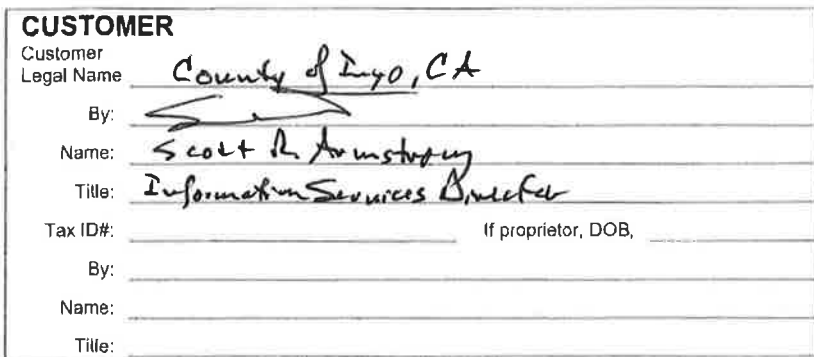 CUSTOMER
Customer
Legal Name County of Inyo, CA
By:
Name: Scott R Armstrong
Title: Information Services Director
Tax ID#: If proprietor, DOB,
By:
Name:
Title: